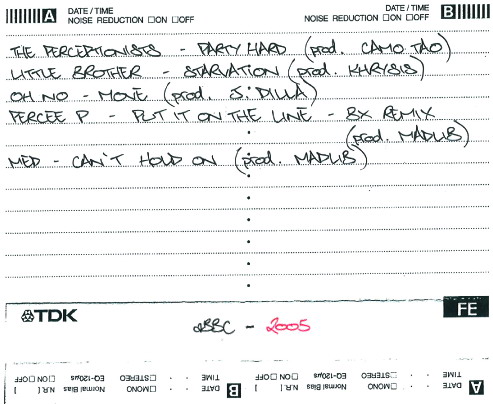 A DATE / TIME
NOISE REDUCTION □ ON □ OFF
DATE / TIME B
NOISE REDUCTION □ ON □ OFF
THE PERCEPTIONISTS - PARTY HARD (prod. CAMO TAO)
LITTLE BROTHER - STARVATION (prod. KHRYSIS)
OH NO - MOVE (prod. J. DILLA)
PERCEE P - PUT IT ON THE LINE - BX REMIX
(prod. MADLIB)
MED - CAN'T HOLD ON (prod. MADLIB)
TDK
FE
- 2005
A DATE TIME
N.R. [ ] □ ON □ OFF
Normal Bias EQ-120µs
□ MONO □ STEREO
B DATE TIME
N.R. [ ] □ ON □ OFF
Normal Bias EQ-120µs
□ MONO □ STEREO